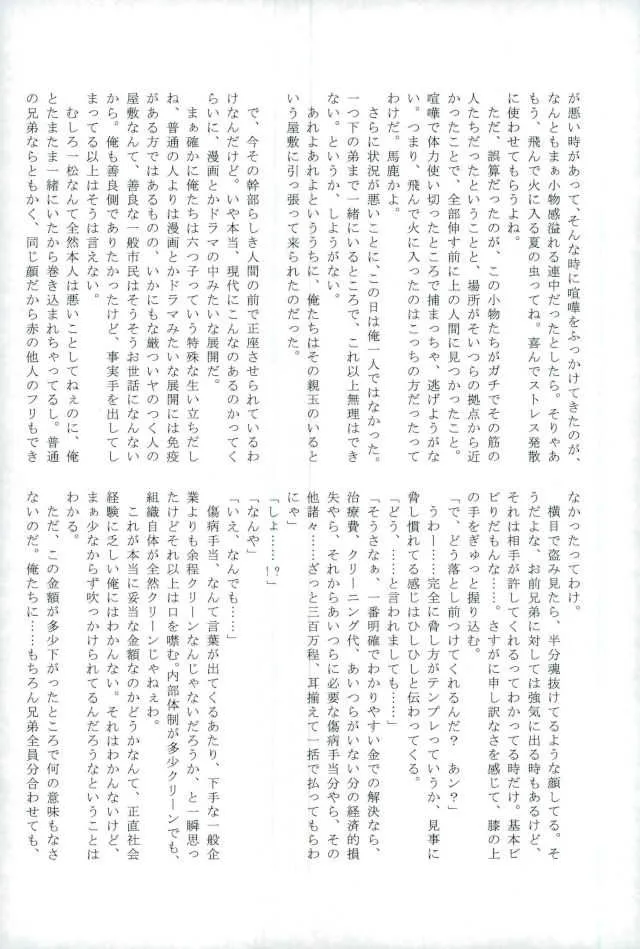 が悪い時があって、そんな時に喧嘩をふっかけてきたのが、
なんともまぁ小物感溢れる連中だったとしたら。そりゃあ
もう、飛んで火に入る夏の虫ってね。喜んでストレス発散
に使わせてもらうよね。
　ただ、誤算だったのが、この小物たちがガチでその筋の
人たちだったということと、場所がそいつらの拠点から近
かったことで、全部伸す前に上の人間に見つかったこと。
喧嘩で体力使い切ったところで捕まっちゃ、逃げようがな
い。つまり、飛んで火に入ったのはこっちの方だったって
わけだ。馬鹿かよ。
　さらに状況が悪いことに、この日は俺一人ではなかった。
一つ下の弟まで一緒にいるところで、これ以上無理はでき
ない。というか、しようがない。
　あれよあれよというううちに、俺たちはその親玉のいると
いう屋敷に引っ張って来られたのだった。
　で、今その幹部らしき人間の前で正座させられているわ
けなんだけど。いや本当、現代にこんなのあるのかってく
らいに、漫画とかドラマの中みたいな展開だ。
　まぁ確かに俺たちは六つ子っていう特殊な生い立ちだし
ね、普通の人よりは漫画とかドラマみたいな展開には免疫
がある方ではあるものの、いかにもな厳ついヤのつく人の
屋敷なんて、善良な一般市民はそうそうお世話にならない
から。俺も善良側でありたかったけど、事実手を出してし
まってる以上はそうは言えない。
　むしろ一松なんて全然本人は悪いことしてねぇのに、俺
とたまたま一緒にいたから巻き込まれちゃってるし。普通
の兄弟ならともかく、同じ顔だから赤の他人のフリもでき
なかったってわけ。
　横目で盗み見たら、半分魂抜けてるような顔してる。そ
うだよな、お前兄弟に対しては強気に出る時もあるけど、
それは相手が許してくれるってわかってる時だけ。基本ビ
ビりだもんな……。さすがに申し訳なさを感じて、膝の上
の手をぎゅっと握り込む。
「で、どう落とし前つけてくれるんだ？　あン？」
　うわー……完全に脅し方がテンプレっていうか、見事に
脅し慣れてる感じはひしひしと伝わってくる。
「どう、……と言われましても……」
「そうさなぁ、一番明確でわかりやすい金での解決なら、
治療費、クリーニング代、あいつらがいない分の経済的損
失やら、それからあいつらに必要な傷病手当分やら、その
他諸々……ざっと三百万程、耳揃えて一括で払ってもらわ
にゃ」
「しょ……！？」
「なんや」
「いえ、なんでも……」
　傷病手当、なんて言葉が出てくるあたり、下手な一般企
業よりも余程クリーンなんじゃないだろうか、と一瞬思っ
たけどそれ以上は口を噤む。内部体制が多少クリーンでも、
組織自体が全然クリーンじゃねぇわ。
　これが本当に妥当な金額なのかどうかなんて、正直社会
経験に乏しい俺にはわかんない。それはわかんないけど、
まぁ少なからず吹っかけられてるんだろうなということは
わかる。
　ただ、この金額が多少下がったところで何の意味もなさ
ないのだ。俺たちに……もちろん兄弟全員分合わせても、